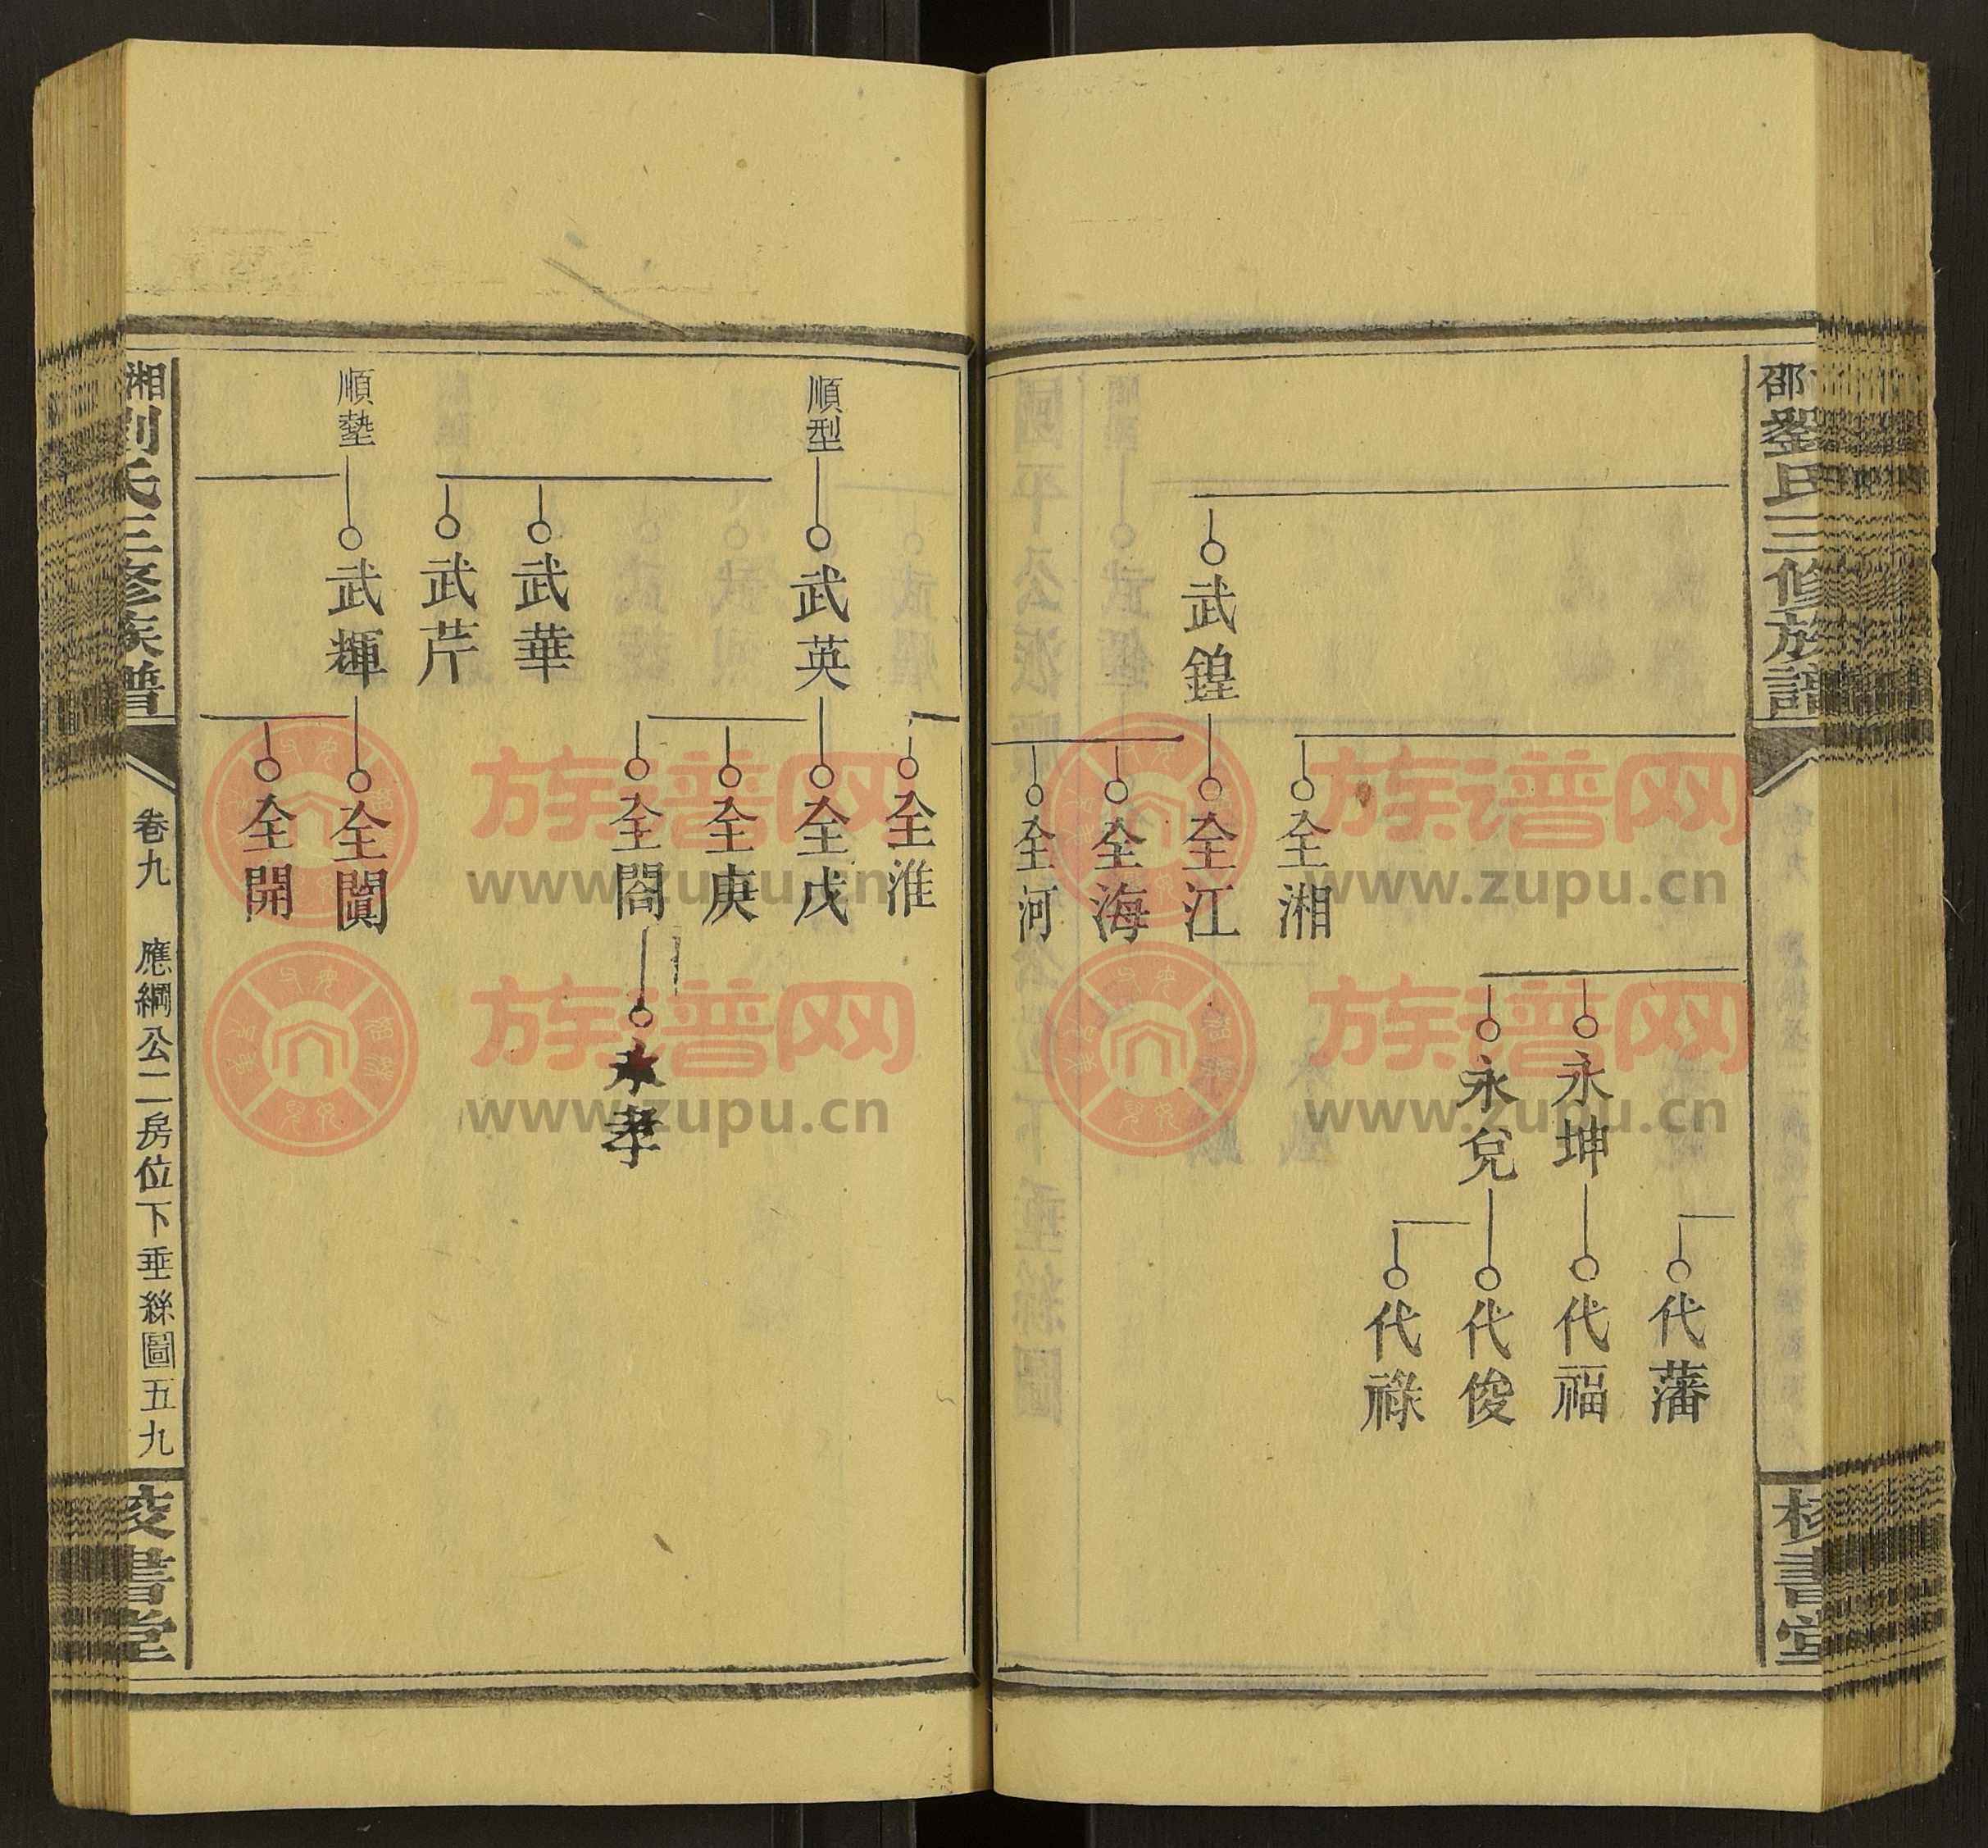 邵劉氏三修族譜
校書堂
代藩
永坤
代福
永兌
代俊
代祿
全湘
武鍠
全江
全海
全河
全淮
順型
武英
全戊
全庚
全閤
永孝
武華
武芹
順塾
武輝
全闐
全開
湘劉氏三修族譜
卷九
應綱公二房位下垂絲圖五九
校書堂
族谱网
www.zupu.cn
族谱网
www.zupu.cn
族谱网
www.zupu.cn
族谱网
www.zupu.cn